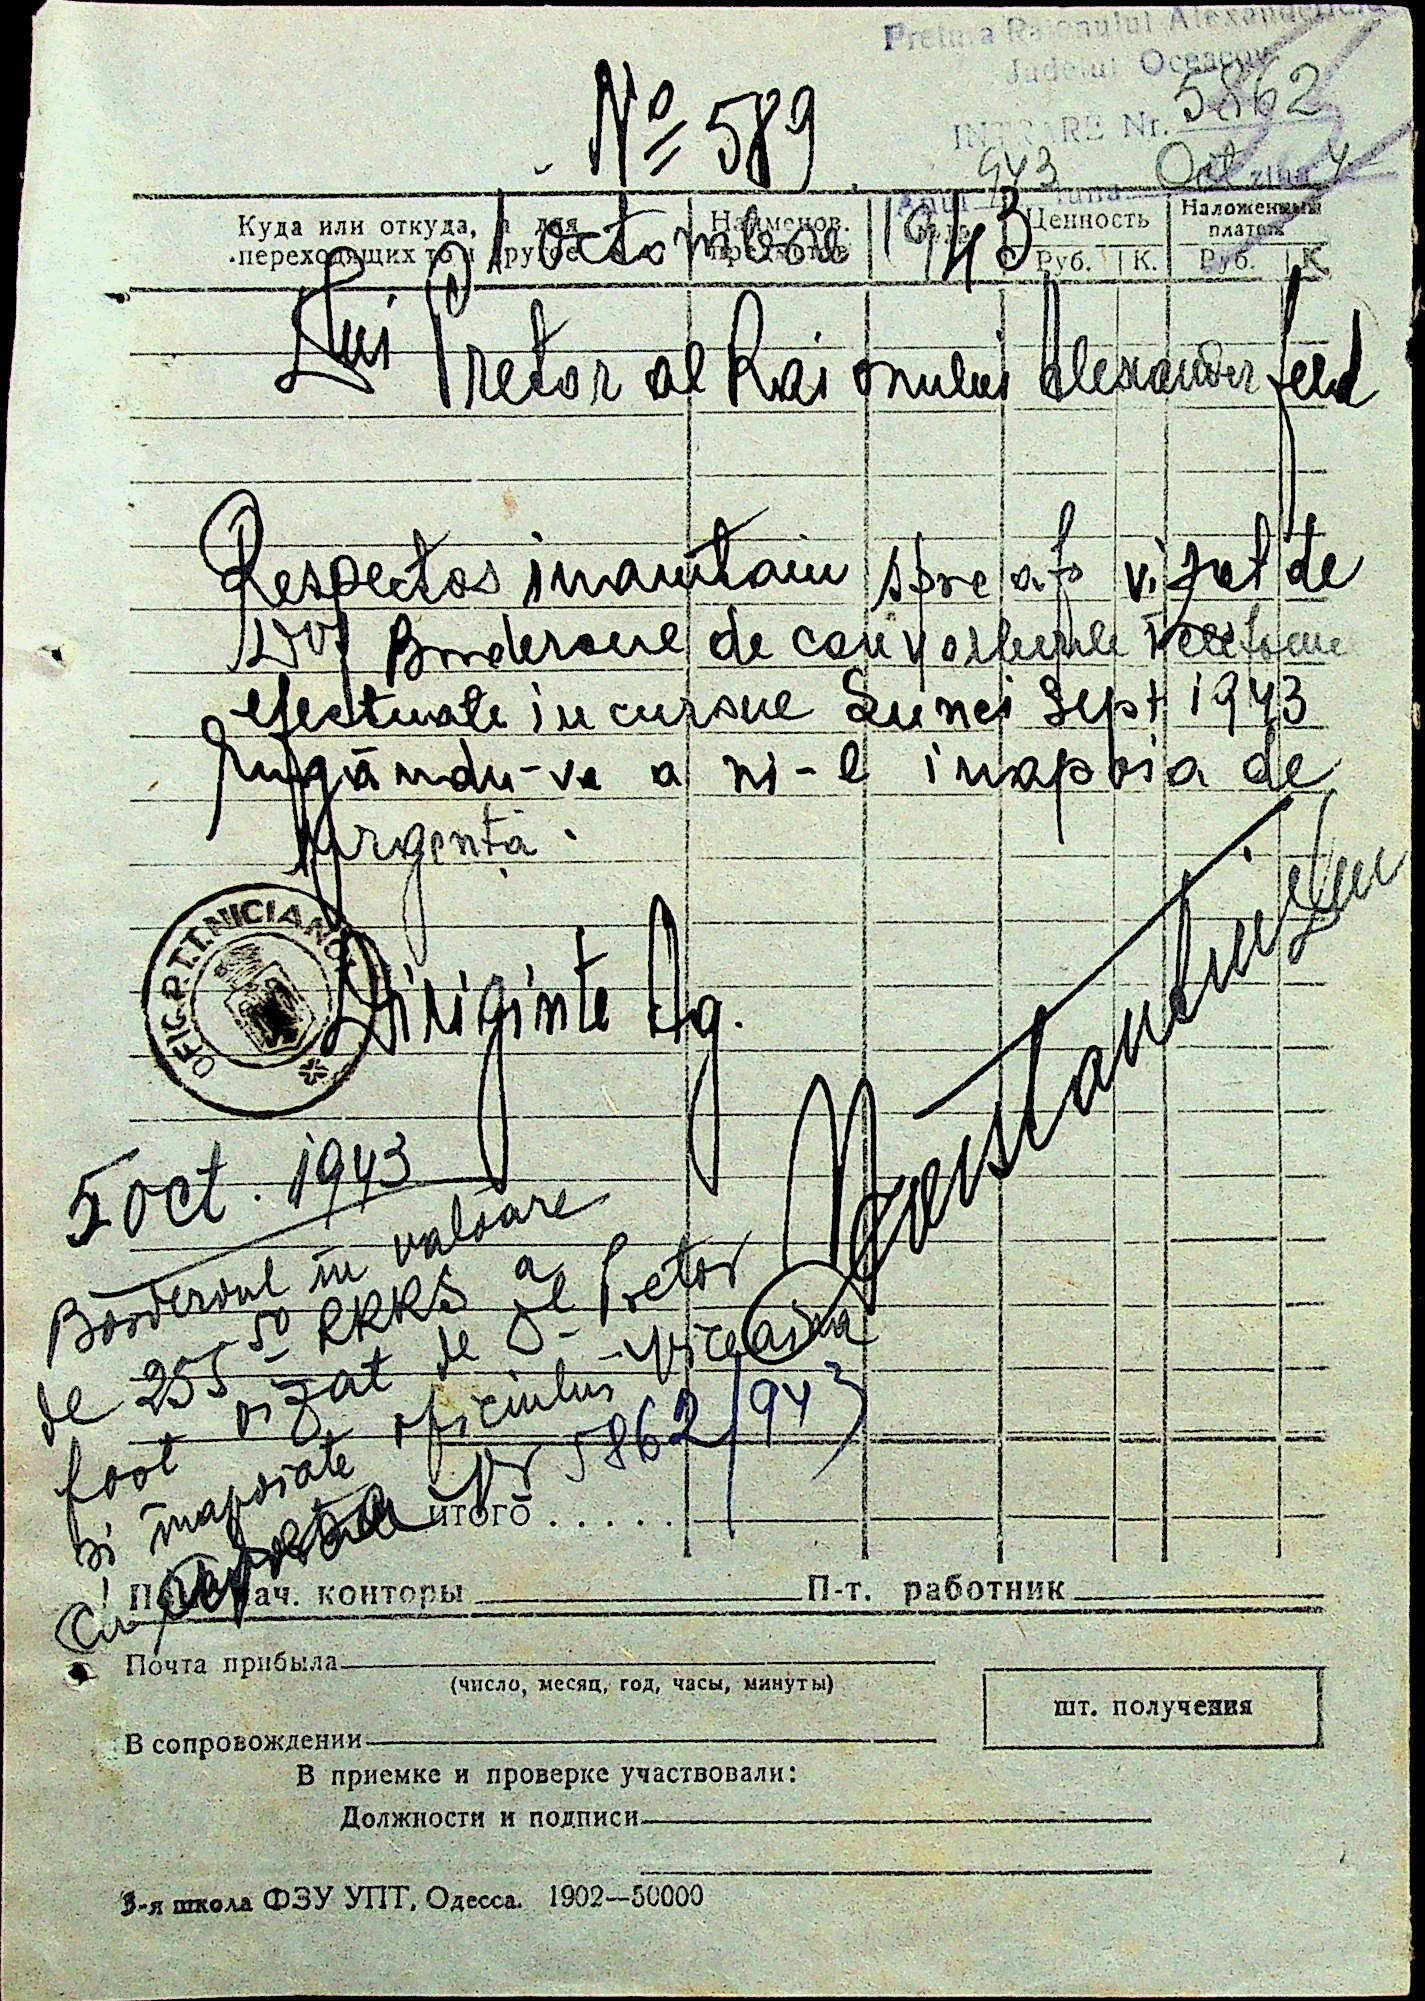 Pretura Raionului Alexanderfeld
Judetul Oceacov
INTRARE Nr. 5862
Anul 943 luna Oct ziua 4
№ 589
1 octombrie 1943
Куда или откуда, а для переходящих то и другое
Наименов.
Ценность
Руб. К.
Наложенный платеж
Руб. К.
Dlui Pretor al Raionului Alexanderfeld
Respectos inaintam spre a fi vizat de
Dvs Borderoul de convorbirile telefonice
efectuate in cursul Lunei Sept 1943
Rugându-va a ni-l inapoia de
urgență.
OFIC. P.T.T. NICIANOV
Diriginte Og.
5 oct. 1943
Borderoul în valoare
de 255 50 RKKS a
fost vizat de Dl Pretor
si inapoiate oficiului
cu nr 5862/943
итого . . . . .
нач. конторы
П-т. работник
Почта прибыла
(число, месяц, год, часы, минуты)
шт. получения
В сопровождении
В приемке и проверке участвовали:
Должности и подписи
3-я школа ФЗУ УПТ, Одесса. 1902—50000